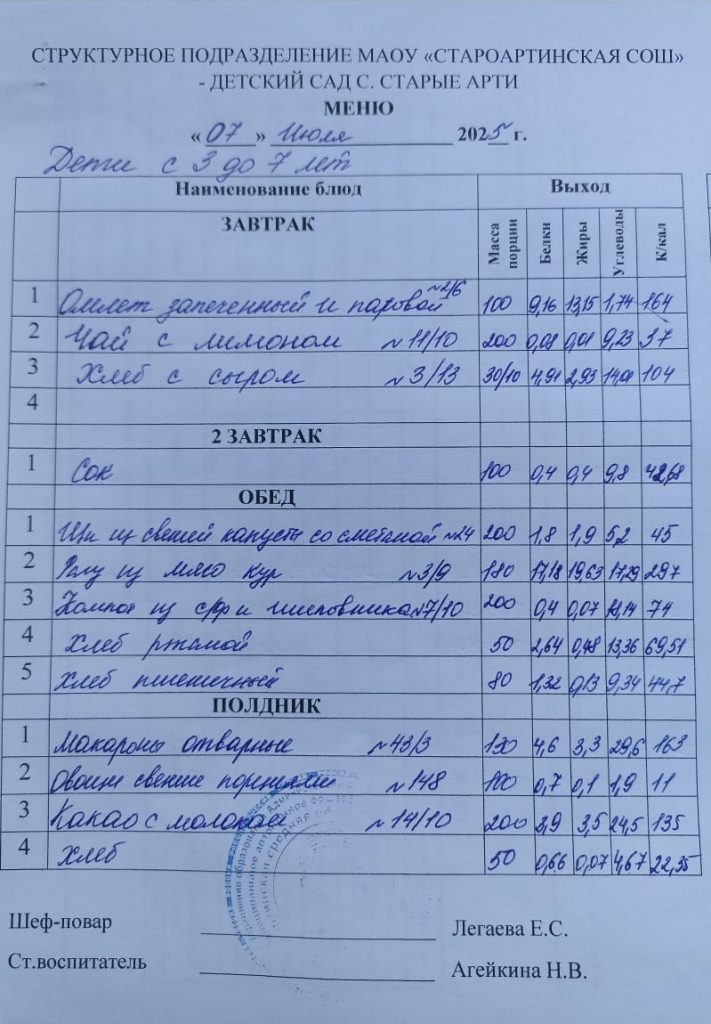 СТРУКТУРНОЕ ПОДРАЗДЕЛЕНИЕ МАОУ «СТАРОАРТИНСКАЯ СОШ»
- ДЕТСКИЙ САД С. СТАРЫЕ АРТИ
МЕНЮ
«07» Июля 2025 г.
Дети с 3 до 7 лет
Наименование блюд Выход
ЗАВТРАК Масса порции Белки Жиры Углеводы К/кал
1 Омлет запеченный и паровой №2/6 100 9,16 13,15 1,74 164
2 Чай с лимоном №11/10 200 0,08 0,01 9,23 37
3 Хлеб с сыром №3/13 30/10 4,91 2,93 14,01 104
4
2 ЗАВТРАК
1 Сок 100 0,4 0,4 9,8 42,68
ОБЕД
1 Щи из свежей капусты со сметаной №24 200 1,8 1,9 5,2 45
2 Рагу из мяса кур №3/9 180 17,18 19,63 17,29 297
3 Компот из с/ф и шиповника №7/10 200 0,4 0,07 74
4 Хлеб ржаной 50 2,64 0,48 13,36 69,51
5 Хлеб пшеничный 80 1,32 0,13 9,34 44,7
ПОЛДНИК
1 Макароны отварные №43/3 130 4,6 3,3 29,6 163
2 Овощи свежие порциями №148 100 0,7 0,1 1,9 11
3 Какао с молоком №14/10 200 3,9 3,5 24,5 135
4 Хлеб 50 0,66 0,07 4,67 22,35
Шеф-повар Легаева Е.С.
Ст.воспитатель Агейкина Н.В.